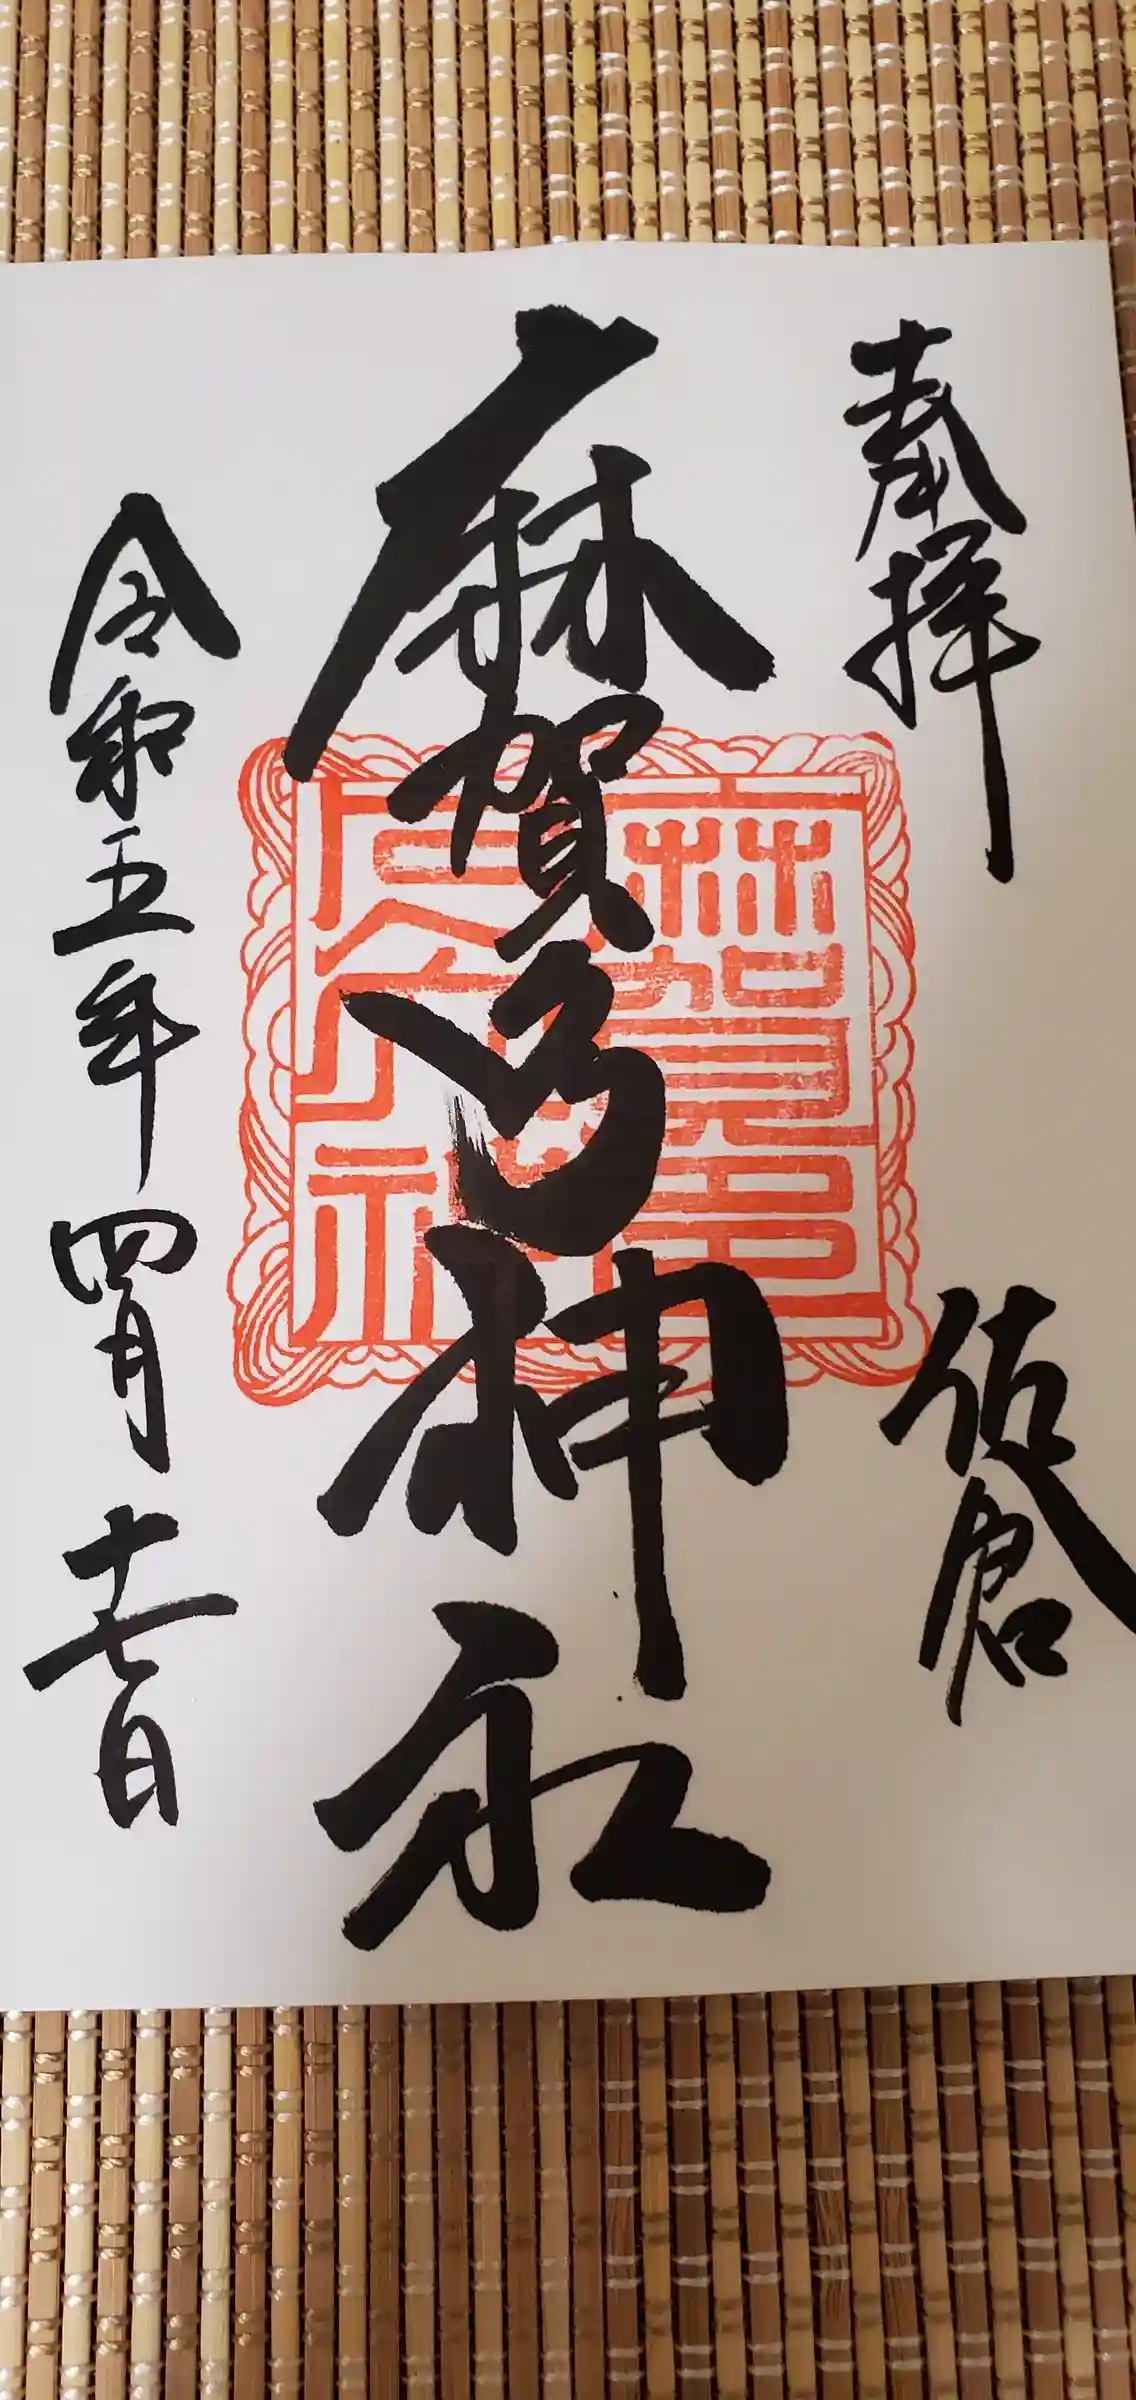 奉拝
佐倉
麻賀多神社
麻賀多
令和五年四月十七日